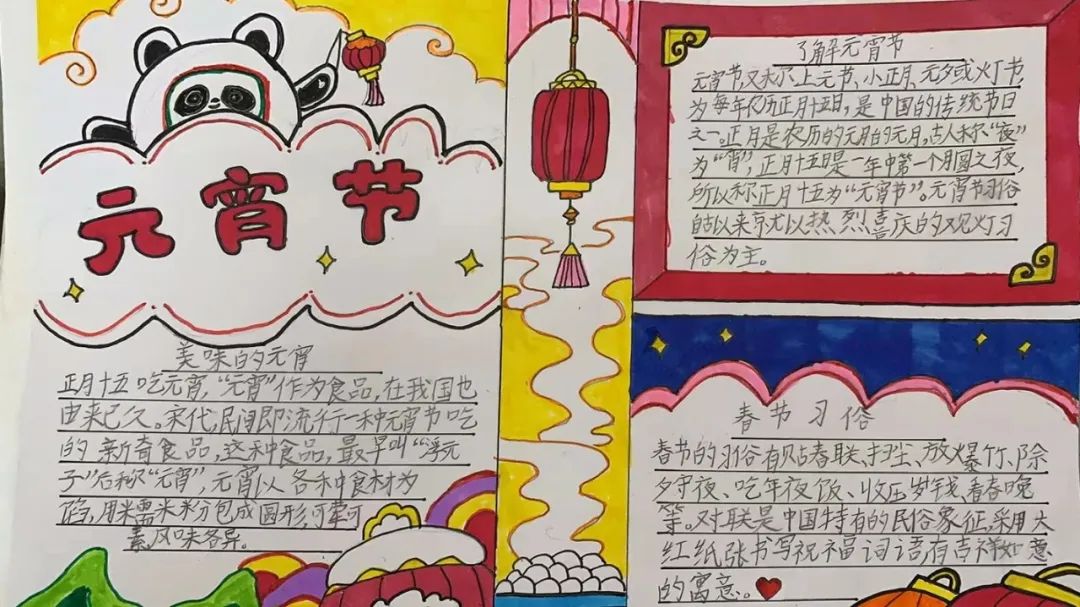 元宵节
美味的元宵
正月十五吃元宵,“元宵”作为食品,在我国也
由来已久。宋代,民间即流行一种元宵节吃
的新奇食品,这种食品,最早叫“浮元
子”后称“元宵”,元宵以各种食材为
馅,用糯米粉包成圆形,可荤可
素,风味各异。
了解元宵节
元宵节,又称上元节、小正月、元夕或灯节,
为每年农历正月十五日,是中国的传统节日
之一。正月是农历的元月,古人称“夜”
为“宵”,正月十五是一年中第一个月圆之夜,
所以称正月十五为“元宵节”。元宵节习俗
自古以来就以热烈喜庆的观灯习
俗为主。
春节习俗
春节的习俗有贴春联、扫尘、放爆竹、除
夕守夜、吃年夜饭、收压岁钱、看春晚
等。对联是中国特有的民俗象征,采用大
红纸张书写祝福词语,有吉祥如意
的寓意。